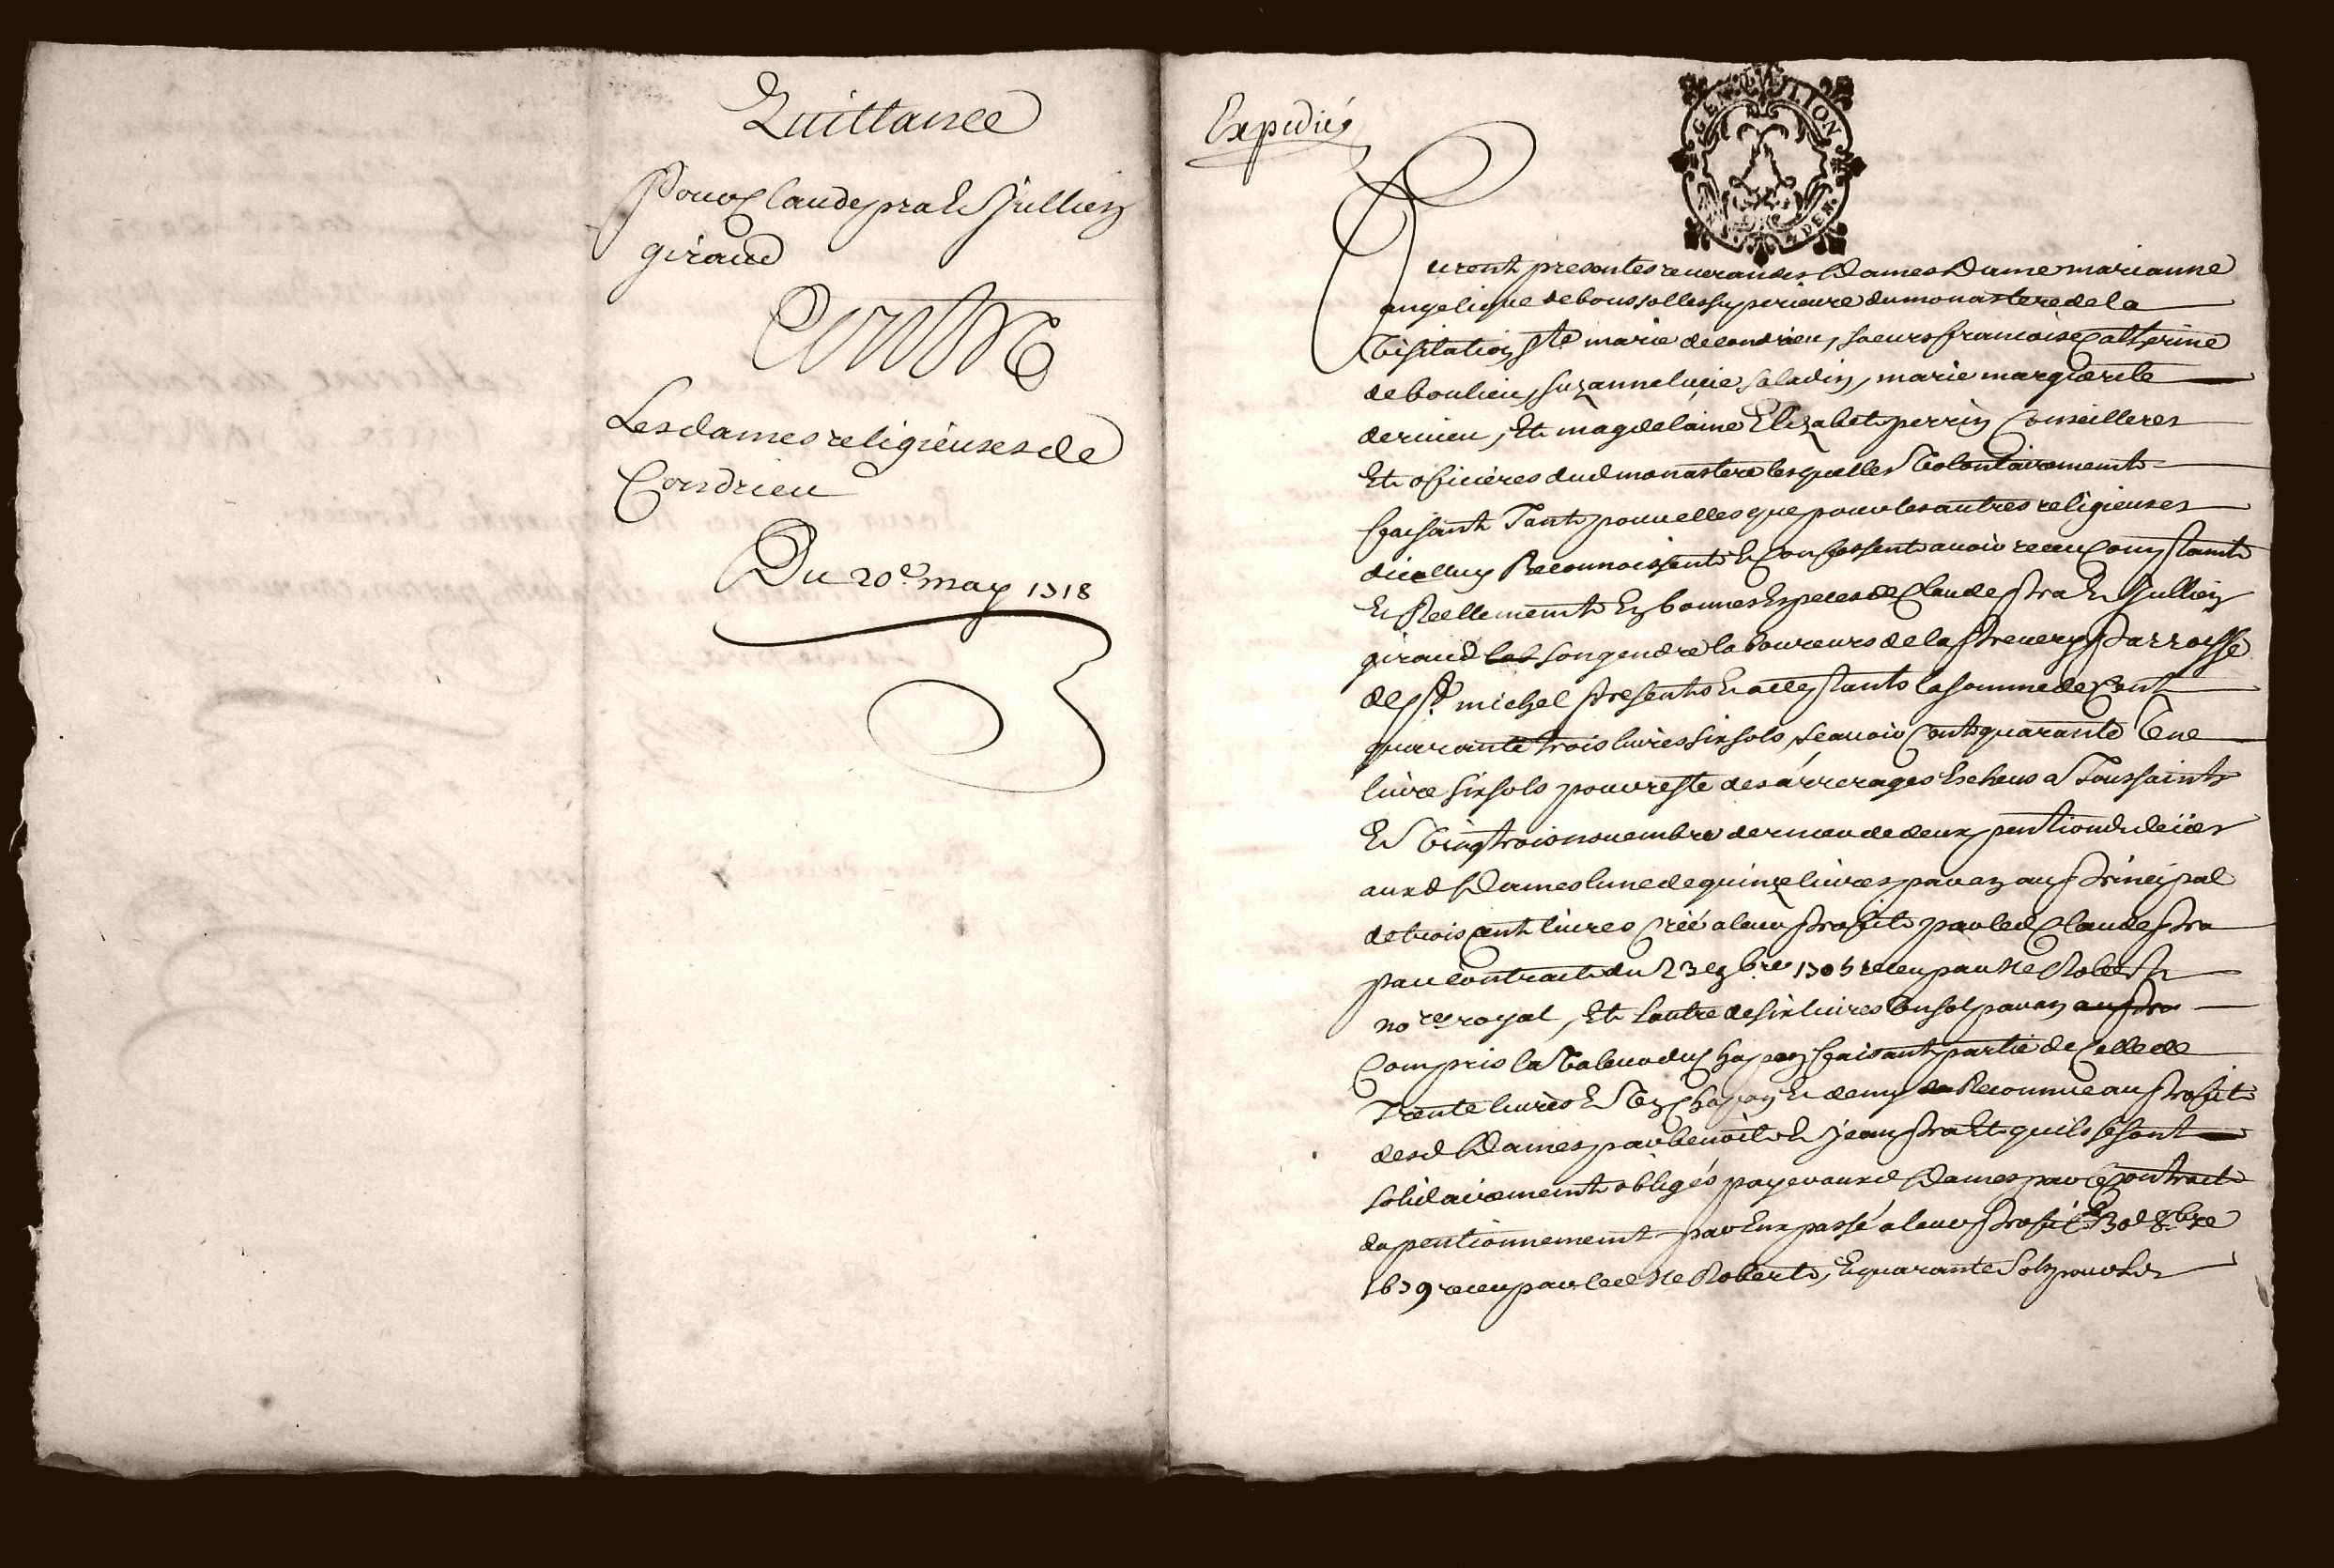 Quittance
Pour Claude pra Et Jullien
giraud
Contre
Les dames religieuses de
Condrieu
Du 20e may 1718
Expedié
GENERALITE LION
furont presentes reuerandes Dames Dame marianne
angelique de boussolles superieure du monastere de la
Visitation Ste marie de condrieu, soeurs francoise Catherine
de boulieu, suzanne lucie saladin, marie marguerite
dernieu, Et magdelaine Elizabet perrin Conseilleres
Et oficieres dud monastere lesquelles Volontairement
faisant Tant pour elles que pour les autres religieuses
dicelluy Reconnoissent Et Confessent auoir receu Comptant
Et Reellement En bonnes Especes de Claude pra Et Jullien
giraud son gendre laboureurs de la parroisse
de St michel presents Et acceptants la somme de Cent
quarante trois liures six sols, scauoir Cent quarante Une
liure six sols pour reste des arrerages Escheus a Toussaints
Et Vingt trois nouembre dernier de deux pentions deües
auxd Dames lune de quinze liures par an au principal
de trois cent liures Créé a leur profit par led Claude pra
par contract du 23e 9bre 1705 receu par Me Robert
nore royal, Et lautre de six liures Un sol par an
Compris la Valeur du Chapon faisant partie de Celle de
Trente liures Et Un Chapon Et demy Reconnue au profit
desd Dames par benoit Et jean pra Et quils se sont
solidairement obligés payer auxd Dames par Contract
de pentionnement par Eux passé a leur profit le 30e 8bre
1679 receu par led Me Robert, Et quarante Sols pour les